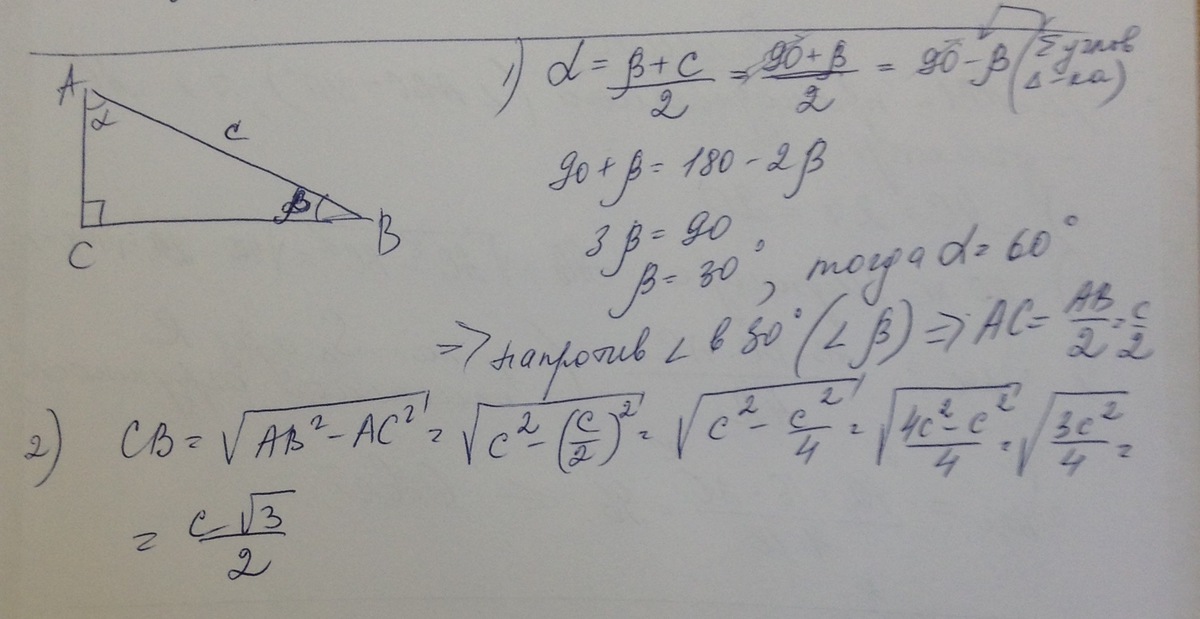 A
α
c
β
C
B
1) α = (β + C)/2 = (90 + β)/2 = 90 - β (Σ углов Δ-ка)
90 + β = 180 - 2β
3β = 90
β = 30°, тогда α = 60°
=> напротив ∠ в 30° (∠β) => AC = AB/2 = c/2
2) CB = √(AB² - AC²) = √(c² - (c/2)²) = √(c² - c²/4) = √((4c² - c²)/4) = √(3c²/4) =
= c√3/2